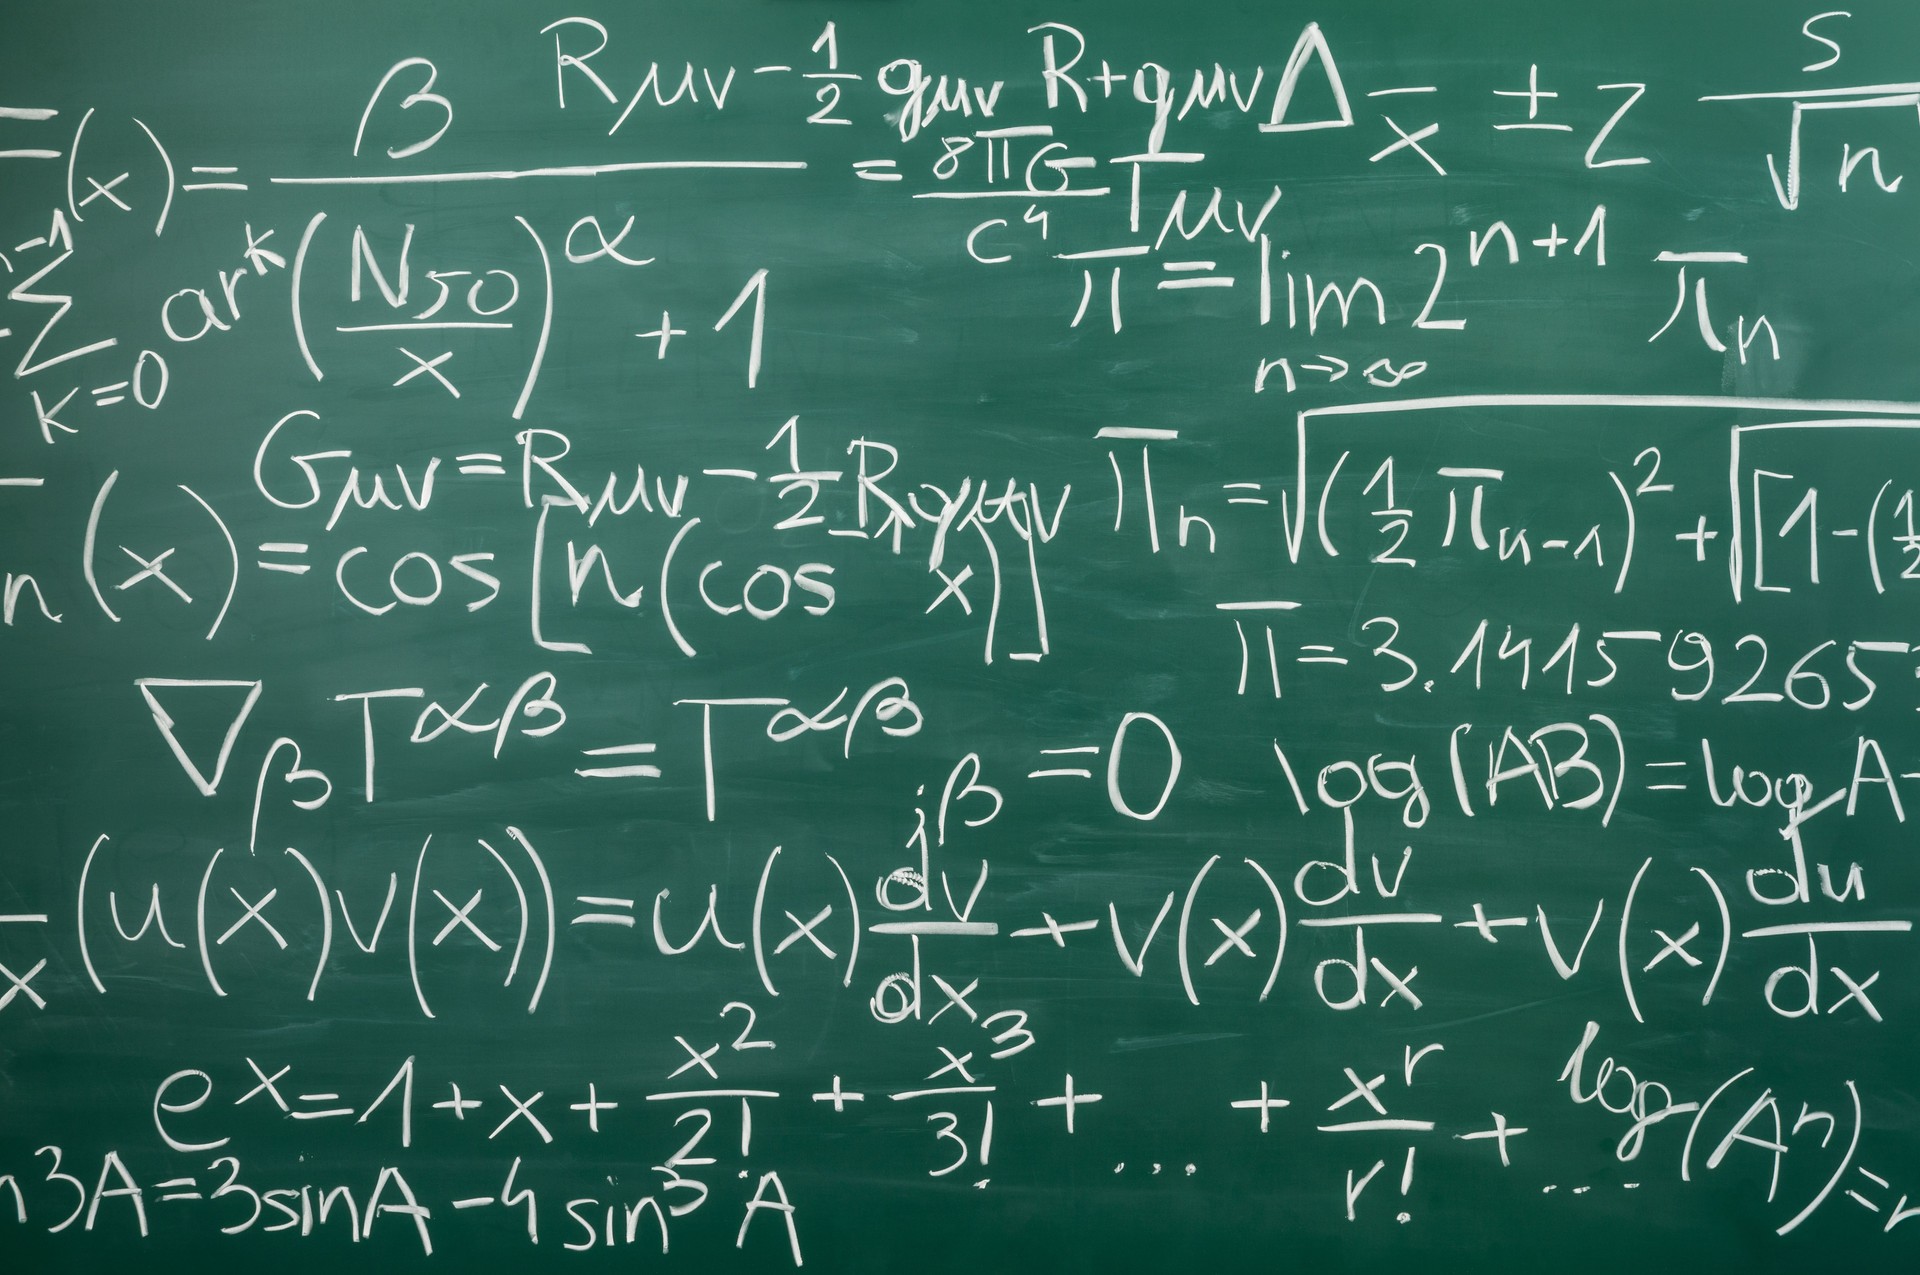 Rμν - 1/2 gμν R + gμν Δ = 8πG/c⁴ Tμν
x̄ ± z s/√n
(x) = β / (N50/x)^α + 1
∑ k=0 n-1 ar^k
π = lim n→∞ 2^(n+1) πn
Gμν = Rμν - 1/2 R gμν
πn = √(1/2 πn-1)² + √[1-(1/2
n(x) = cos[n(cos x)]
π = 3.14159265
∇β T^αβ = T^αβ ;β = 0
log(AB) = log A
x (u(x)v(x)) = u(x) dv/dx + v(x) dv/dx + v(x) du/dx
e^x = 1 + x + x²/2! + x³/3! + ... + x^r/r! + ....
log(Aⁿ) =
n3A = 3sinA - 4sin³A